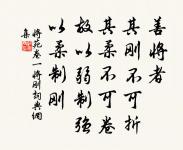 善將者
其剛不可折
其柔不可卷
故以弱制強
以柔制剛
將苑卷一將剛詞典網